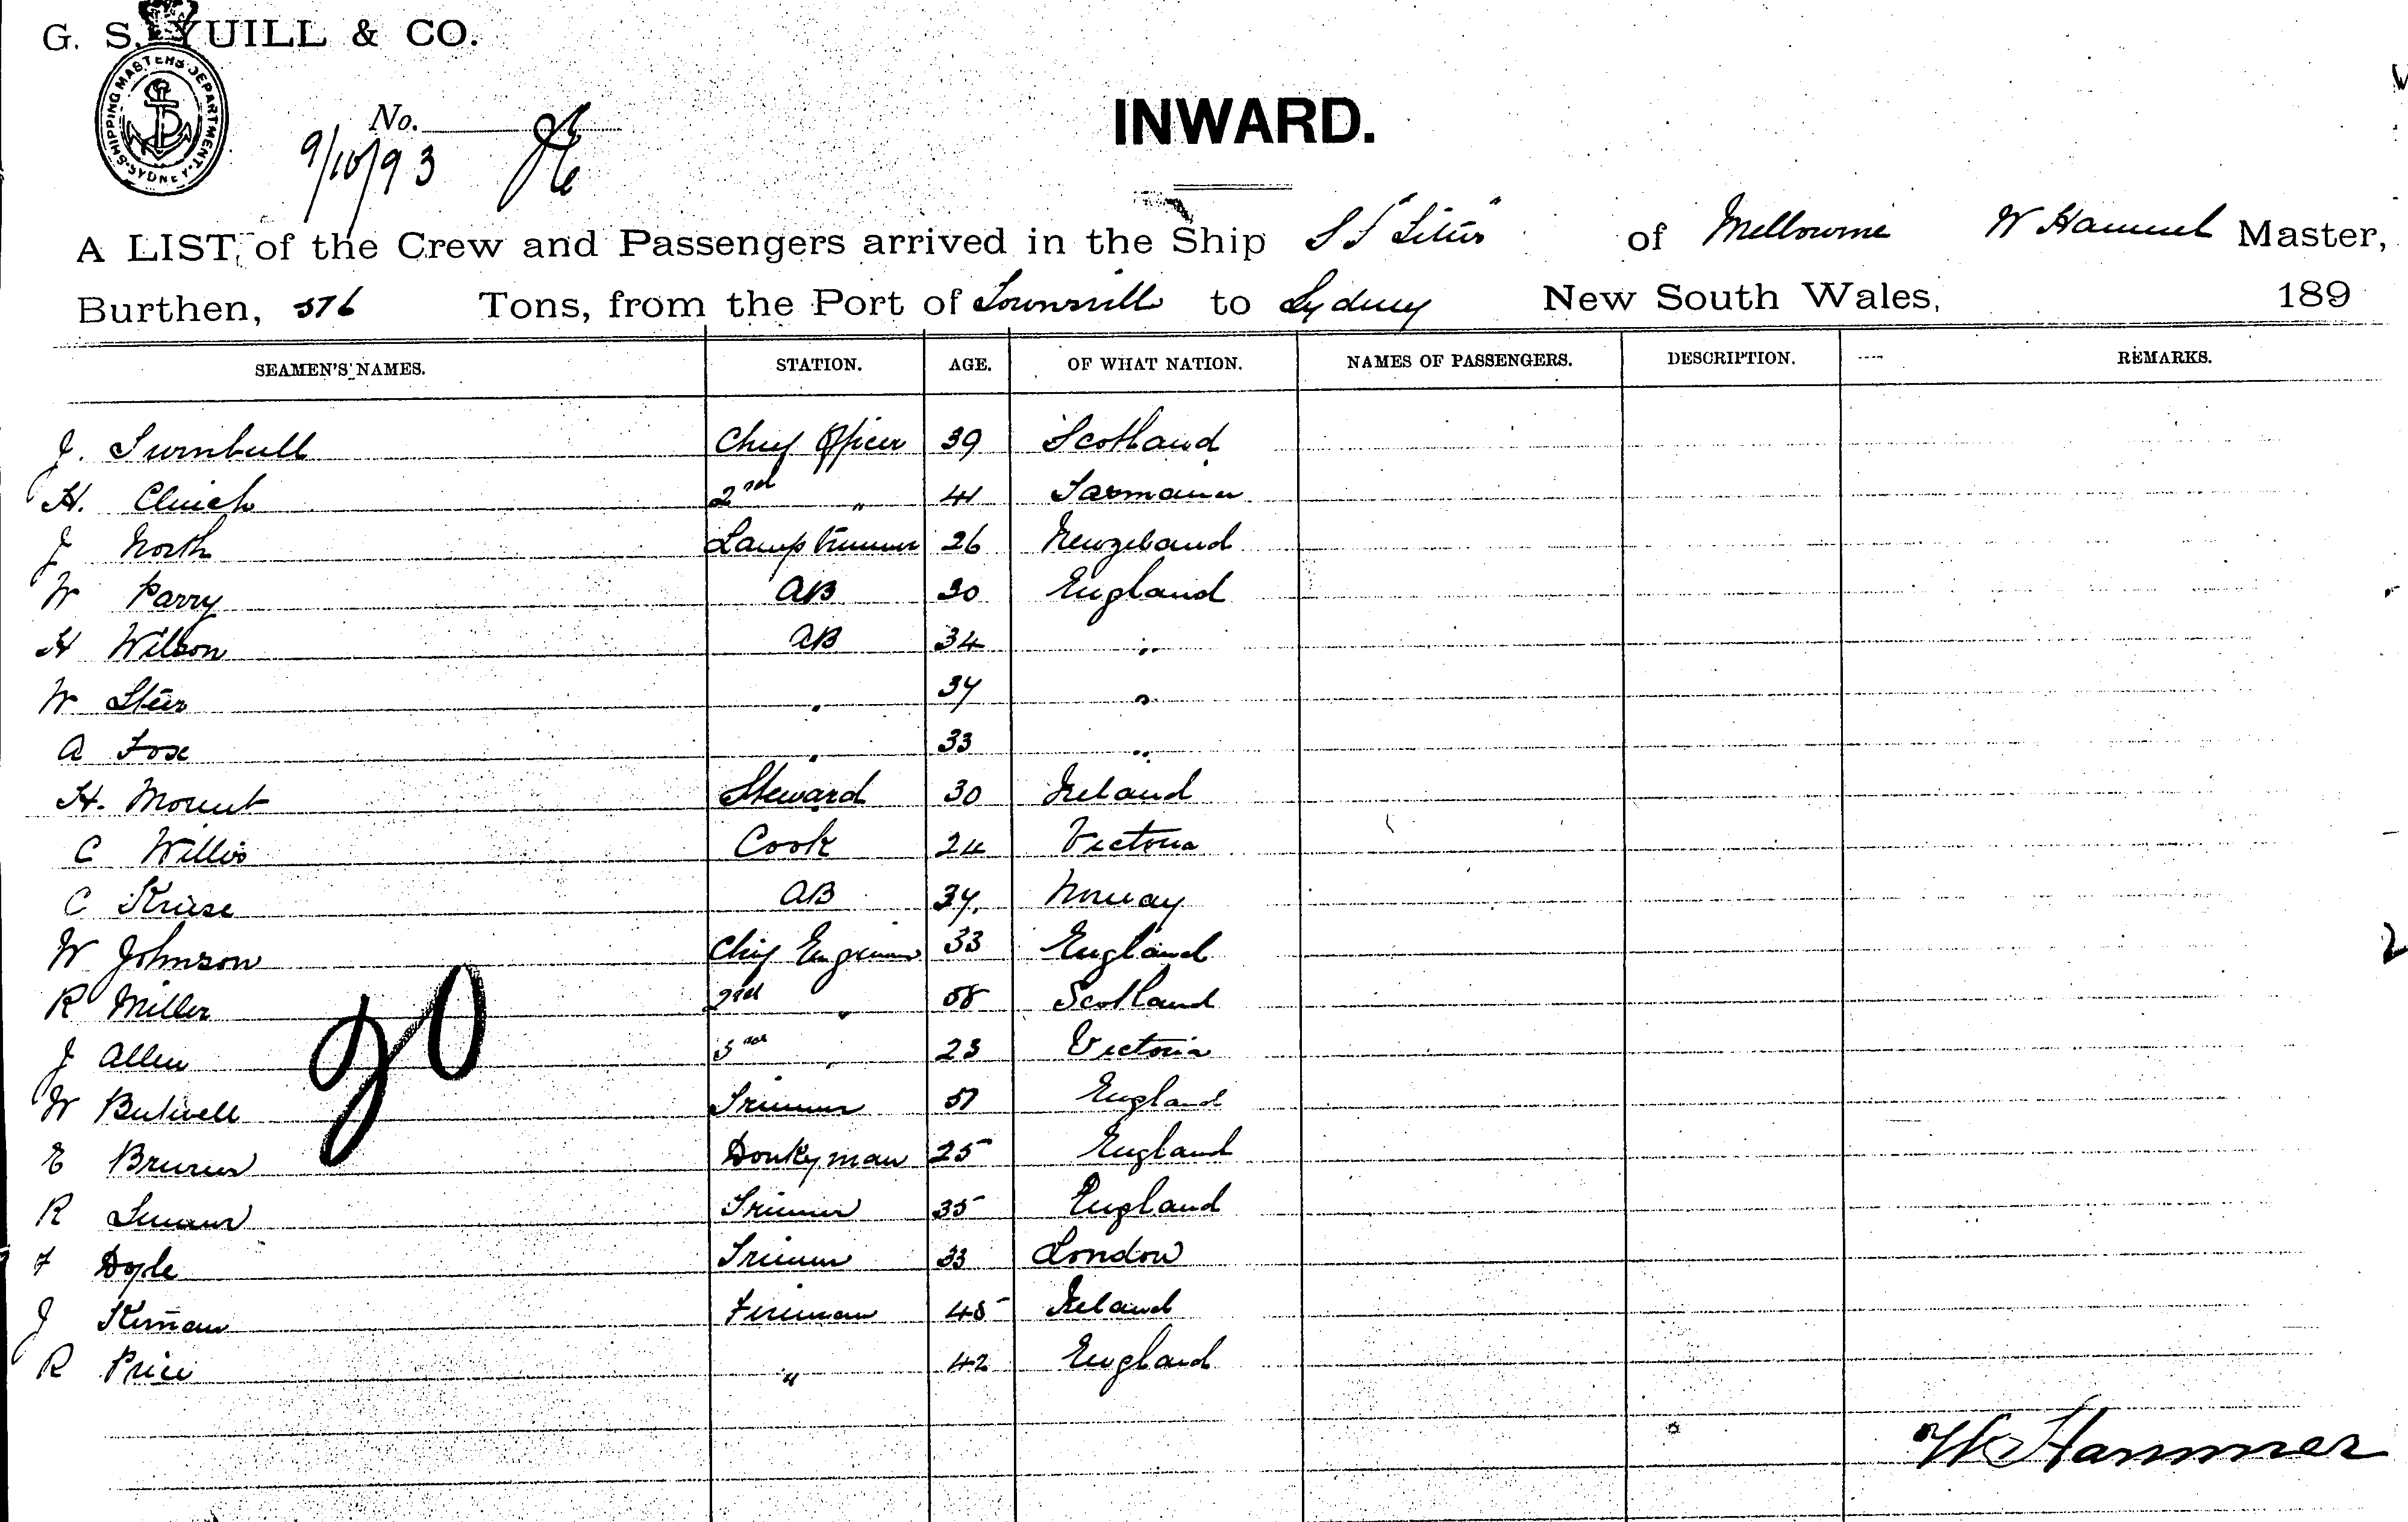 G. S. YUILL & CO.
SHIPPING MASTERS DEPARTMENT. SYDNEY
No.
9/10/93
INWARD.
A LIST, of the Crew and Passengers arrived in the Ship SS "Titus" of Melbourne W Hammer Master,
Burthen, 576 Tons, from the Port of Townsville to Sydney New South Wales, 189
SEAMEN'S NAMES. STATION. AGE. OF WHAT NATION. NAMES OF PASSENGERS. DESCRIPTION. REMARKS.
J. Turnbull Chief Officer 39 Scotland
H. Cluich 2nd " 41 Tasmania
J North Lamptrimmer 26 Newzeland
W Parry AB 30 England
H Wilson AB 34 "
W Steer " 34 "
A Fox " 33 "
H. Mount Steward 30 Ireland
C Willis Cook 24 Victoria
C Kruse AB 34 Norway
W Johnson Chief Engineer 33 England
R Miller 2nd " 58 Scotland
J Allen 3rd " 23 Victoria
W Butwell Trimmer 51 England
E Donkyman 25 England
R Trimmer 35 England
F Doyle Trimmer 33 London
J Kirnan Fireman 45 Ireland
R Price " 42 England
W Hammer